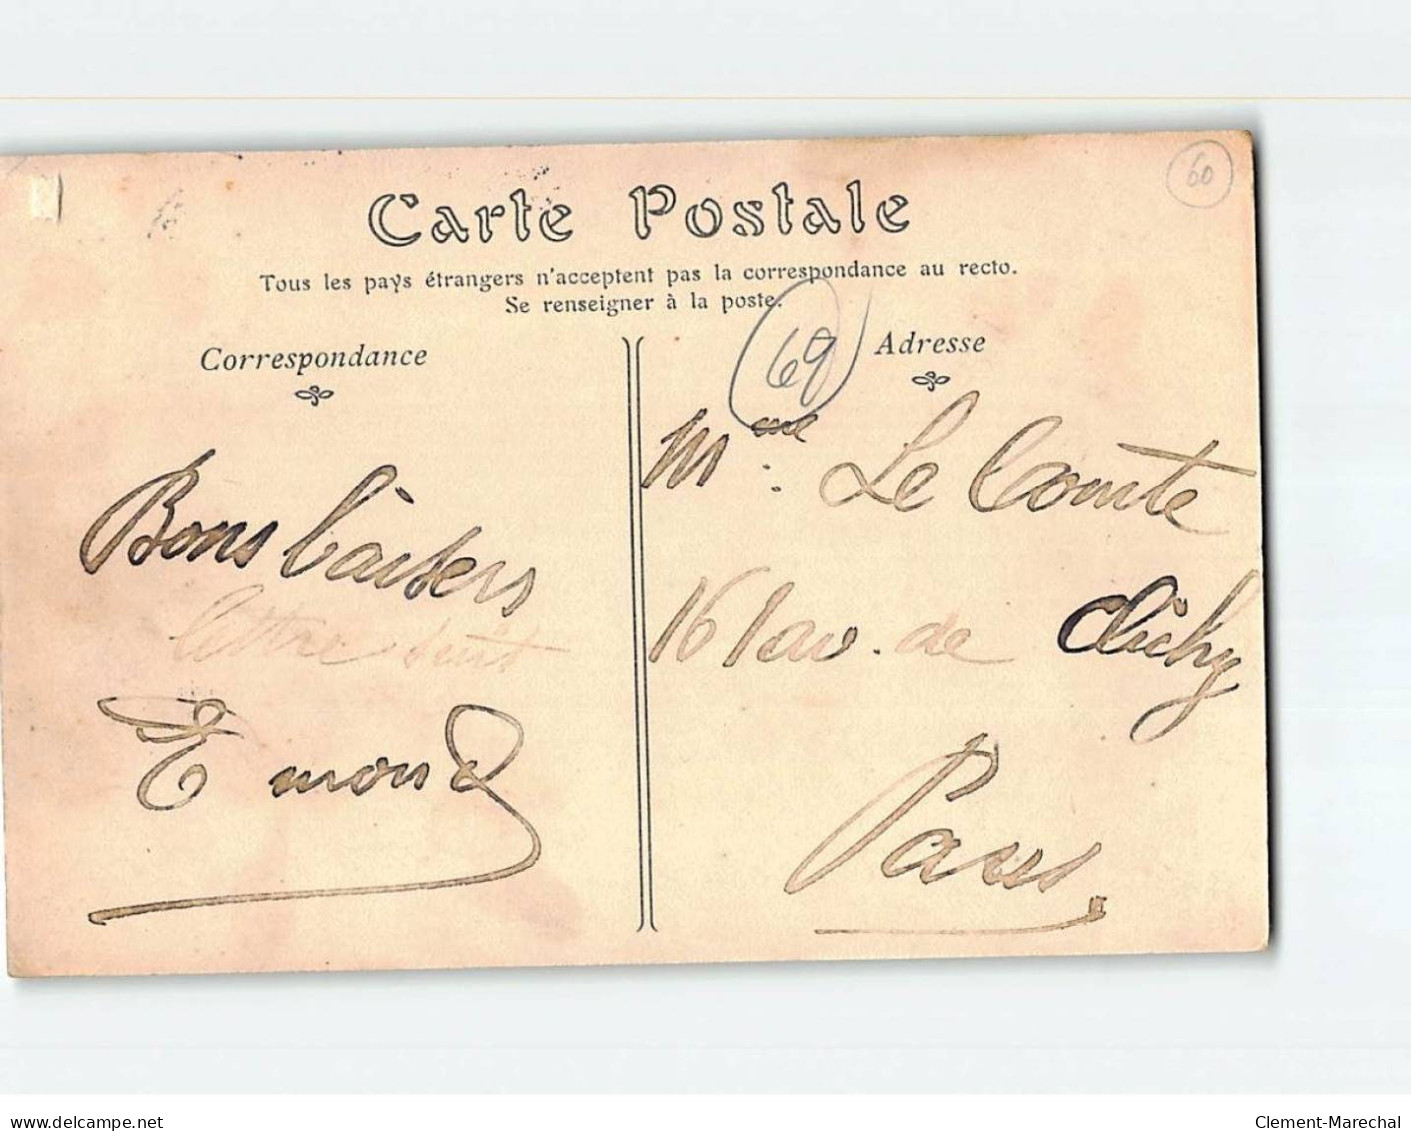 Carte Postale
Tous les pays étrangers n'acceptent pas la correspondance au recto.
Se renseigner à la poste.
Correspondance
Adresse
60
69
Bons baisers
lettre suit
Emond
Mme. Le Comte
161 av. de Clichy
Paris.
delcampe.net
Clement-Marechal